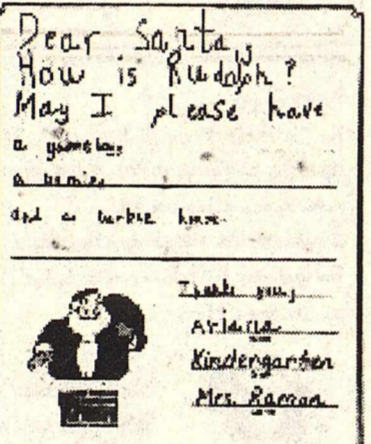 Dear Santa,
How is Rudolph?
May I please have
a gameboy
a
and a barbie house.
Thank you,
Ariana
Kindergarten
Mrs. Raman